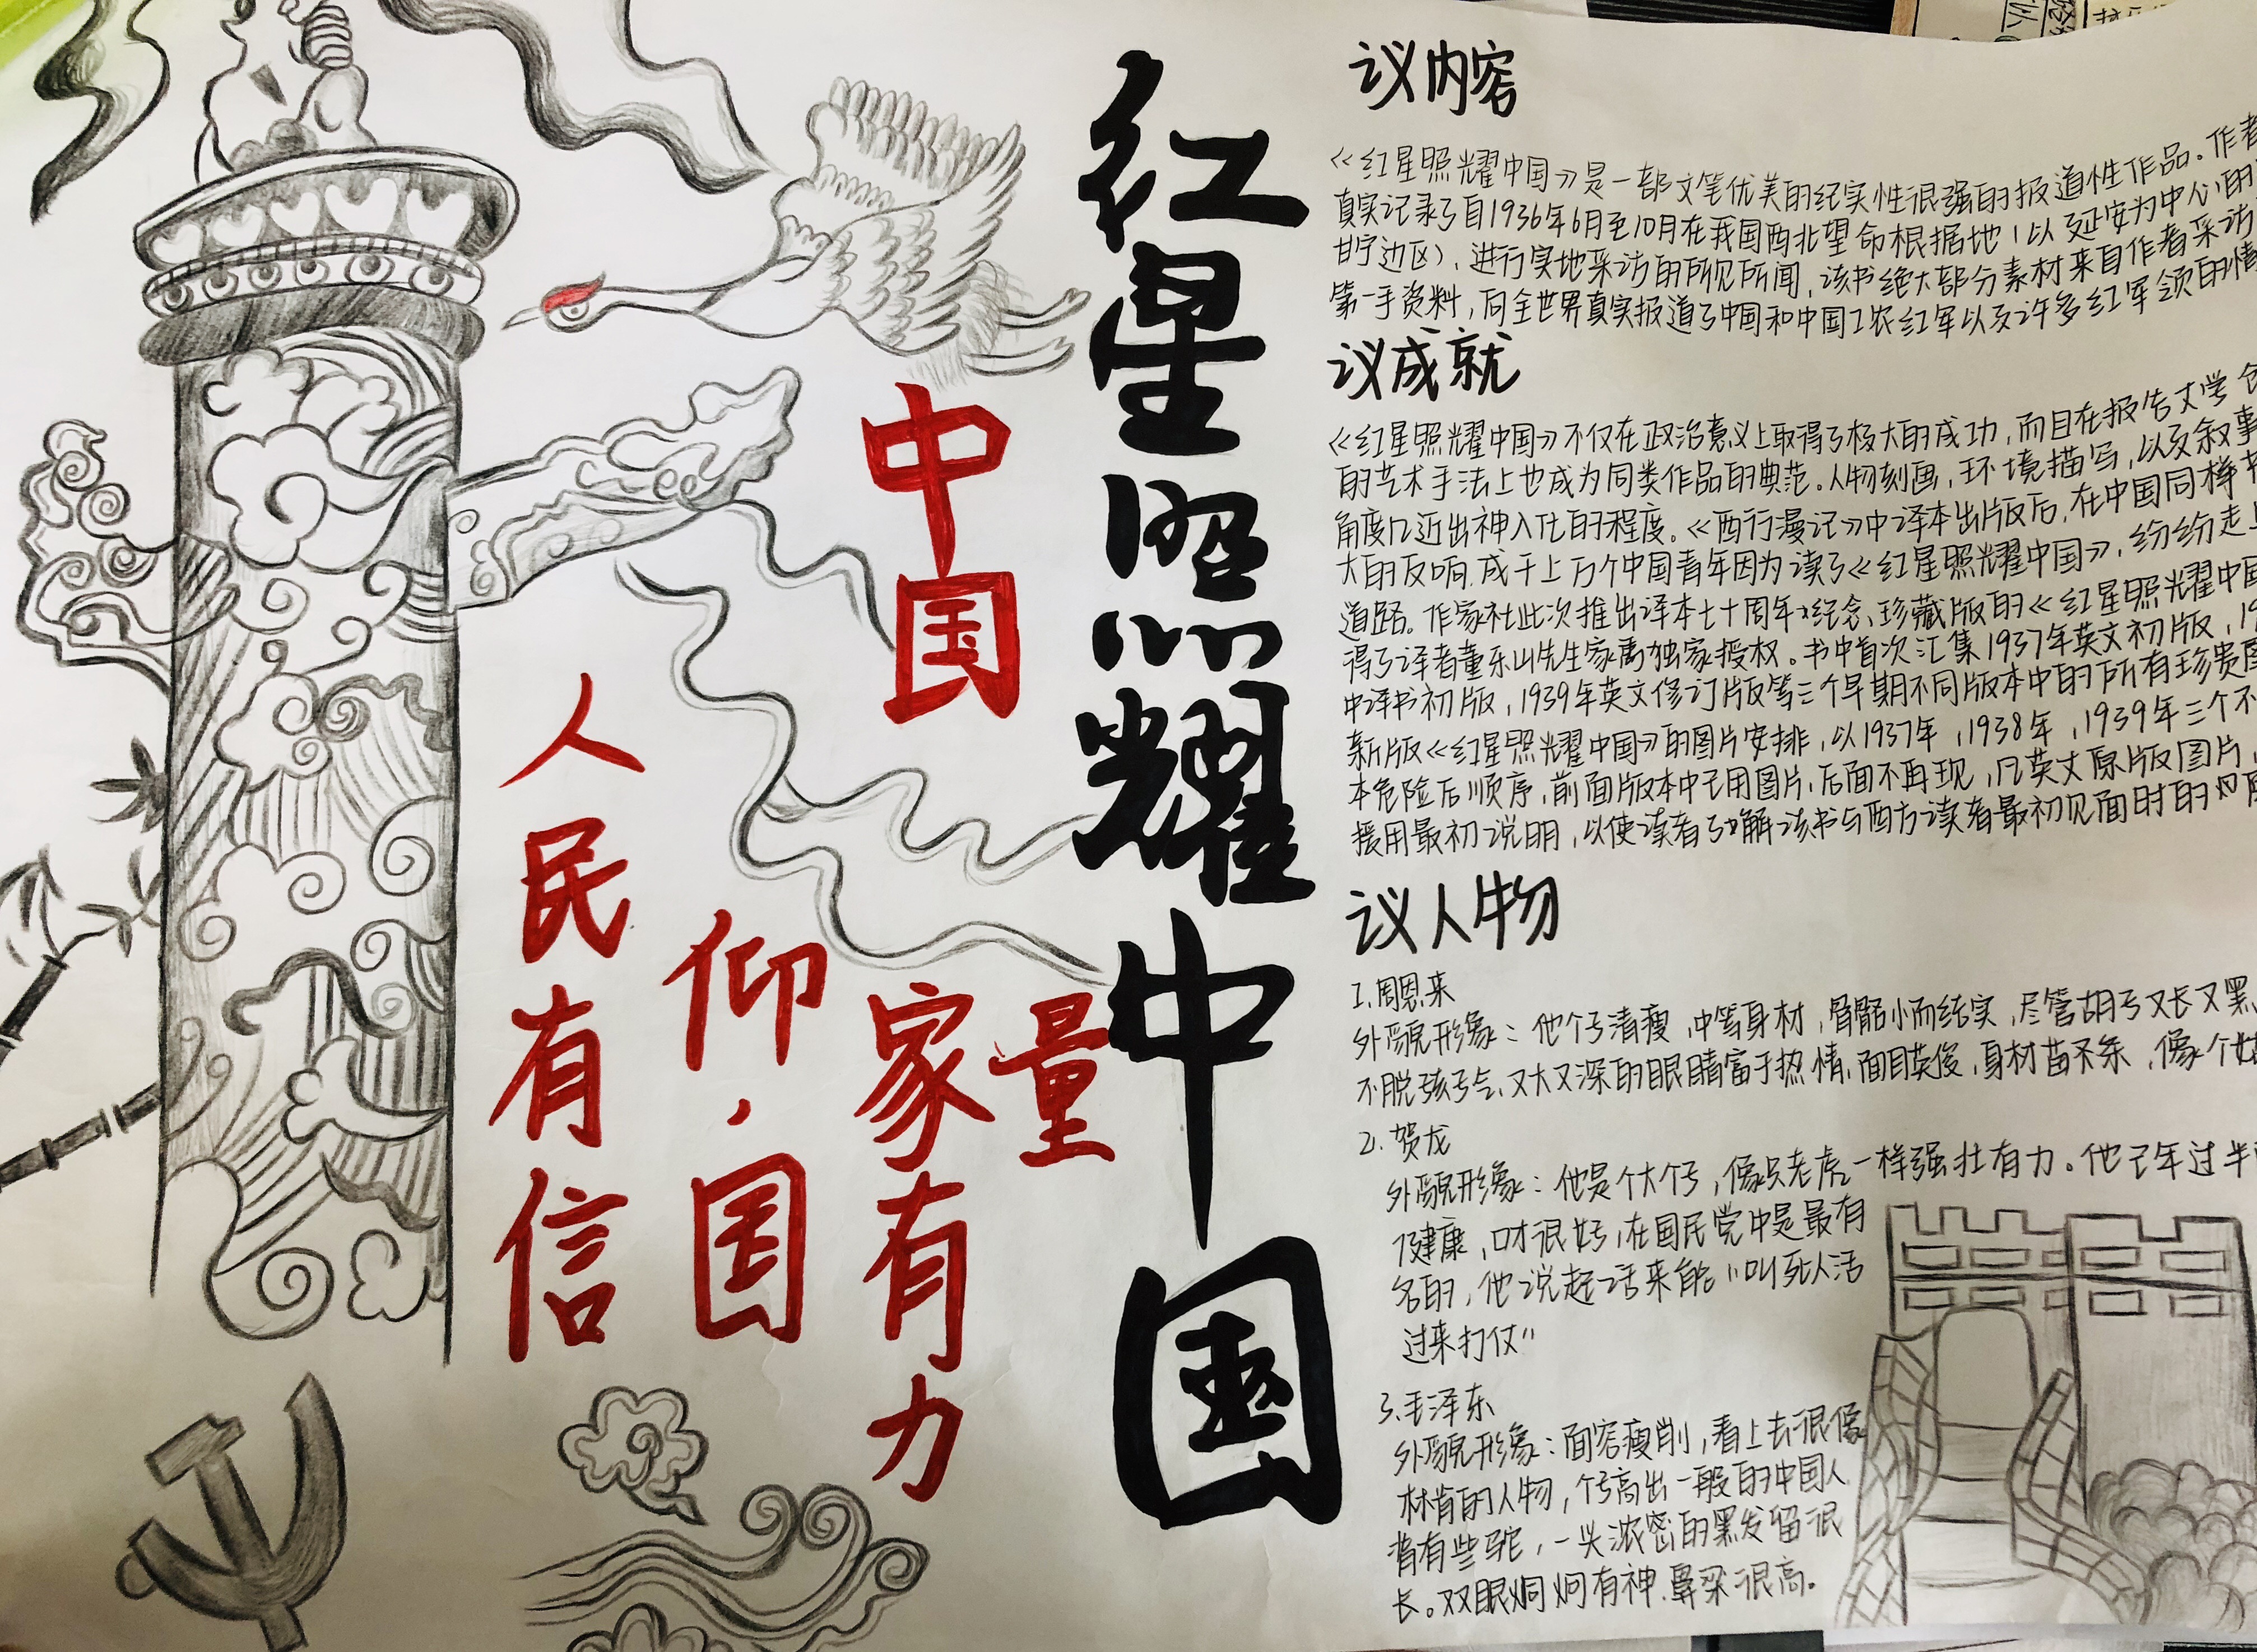 红星照耀中国
中国
人民有信
仰,国
家有力
量
议内容
《红星照耀中国》是一部文笔优美的纪实性很强的报道性作品。作者
真实记录了自1936年6月至10月在我国西北望命根据地(以延安为中心的
甘宁边区),进行实地采访的所见所闻,该书绝大部分素材来自作者采访
第一手资料,向全世界真实报道了中国和中国工农红军以及许多红军领的情
议成就
《红星照耀中国》不仅在政治意义上取得了极大的成功,而且在报告文学
的艺术手法上也成为同类作品的典范。人物刻画,环境描写,以及叙事
角度几近出神入化的程度。《西行漫记》中译本出版后,在中国同样
大的反响,成千上万个中国青年因为读了《红星照耀中国》,纷纷走上
道路。作家社此次推出译本七十周年纪念、珍藏版的《红星照耀中国
得了译者董乐山先生家离独家授权。书中首次汇集1937年英文初版,19
中译书初版,1939年英文修订版等三个早期不同版本中的所有珍贵图
新版《红星照耀中国》的图片安排,以1937年,1938年,1939年三个不
本危险后顺序,前面版本中已用图片,后面不再现,凡英文原版图片,
援用最初说明,以使读者了解该书与西方读者最初见面时的风
议人物
1.周恩来
外貌形象:他个子清瘦,中等身材,骨骼小而结实,尽管胡子又长又黑,
不脱孩子气、又大又深的眼睛富于热情,面目英俊,身材苗条,像个
2.贺龙
外貌形象:他是个大个子,像只老虎一样强壮有力。他已年过半
健康,口才很好,在国民党中是最有
名的,他说起话来能"叫死人活
过来打仗"
3.毛泽东
外貌形象:面容瘦削,看上去很像
林肯的人物,个子高出一般的中国人
背有些驼,一头浓密的黑发留很
长。双眼炯炯有神.鼻梁很高。